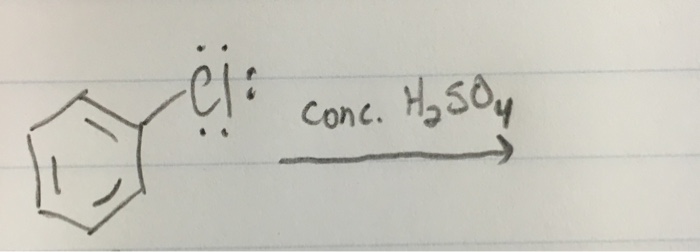 Cl
conc. H₂SO₄